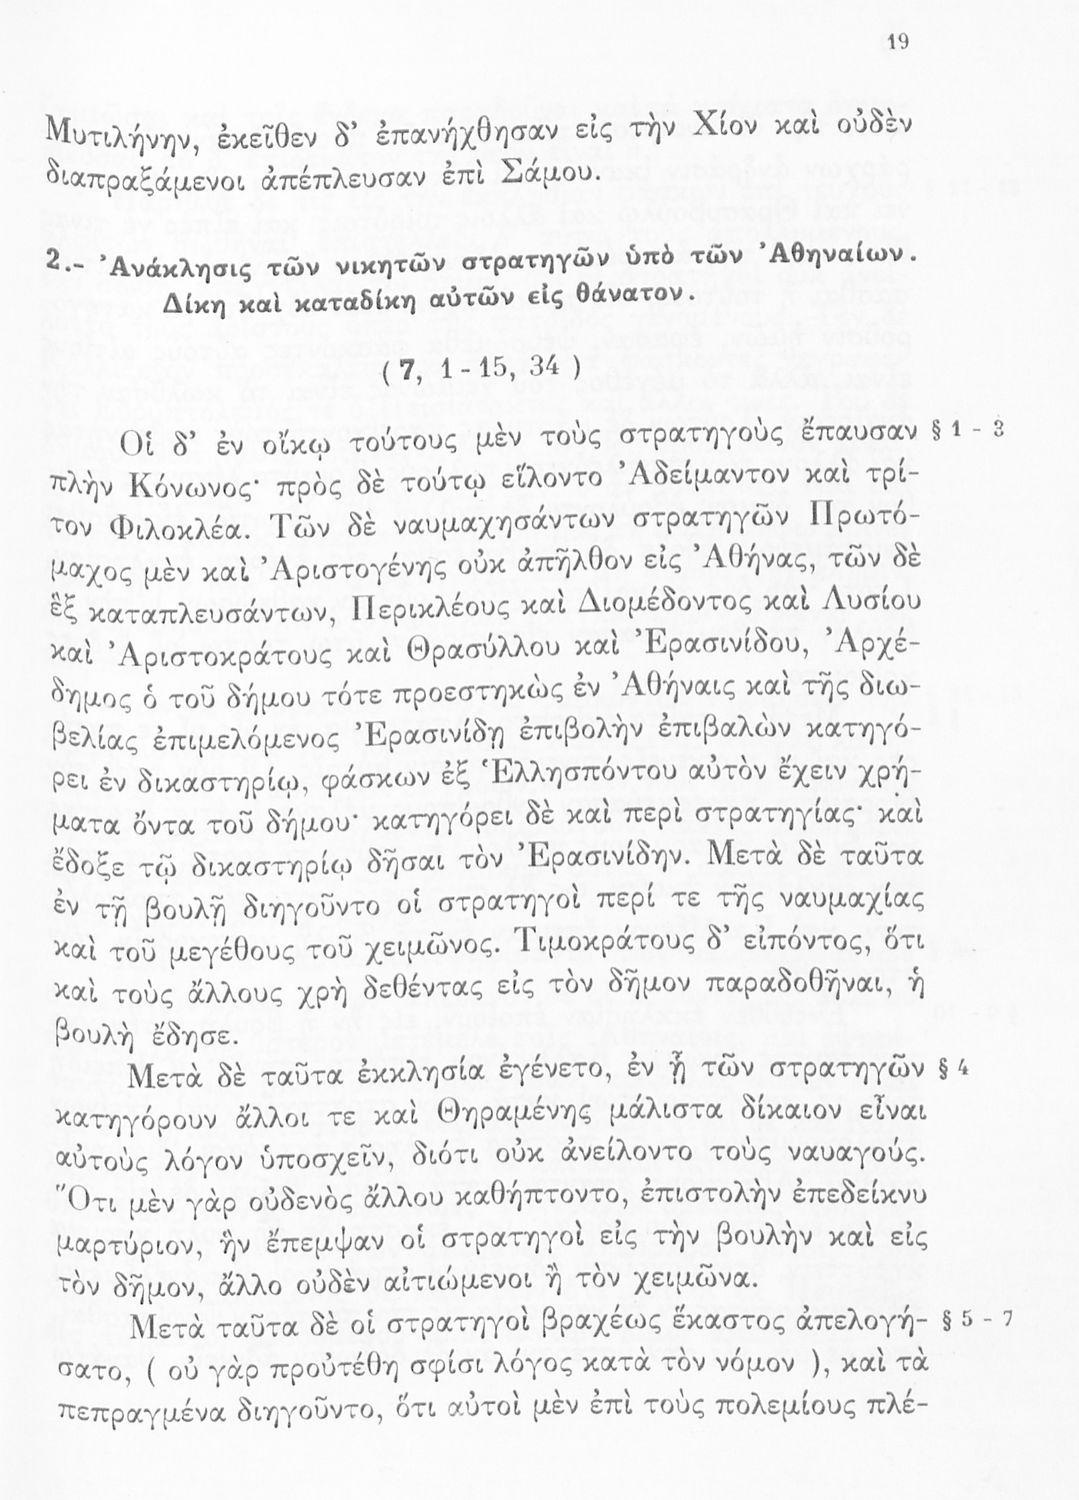 19
Μυτιλήνην, ἐκεῖθεν δ’ ἐπανήχθησαν εἰς τὴν Χίον καὶ οὐδὲν
διαπραξάμενοι ἀπέπλευσαν ἐπὶ Σάμου.
2.- Ἀνάκλησις τῶν νικητῶν στρατηγῶν ὑπὸ τῶν Ἀθηναίων.
Δίκη καὶ καταδίκη αὐτῶν εἰς θάνατον.
( 7, 1 - 15, 34 )
Οἱ δ’ ἐν οἴκῳ τούτους μὲν τοὺς στρατηγοὺς ἔπαυσαν § 1 - 3
πλὴν Κόνωνος· πρὸς δὲ τούτῳ εἵλοντο Ἀδείμαντον καὶ τρί-
τον Φιλοκλέα. Τῶν δὲ ναυμαχησάντων στρατηγῶν Πρωτό-
μαχος μὲν καὶ Ἀριστογένης οὐκ ἀπῆλθον εἰς Ἀθήνας, τῶν δὲ
ἓξ καταπλευσάντων, Περικλέους καὶ Διομέδοντος καὶ Λυσίου
καὶ Ἀριστοκράτους καὶ Θρασύλλου καὶ Ἐρασινίδου, Ἀρχέ-
δημος ὁ τοῦ δήμου τότε προεστηκὼς ἐν Ἀθήναις καὶ τῆς διω-
βελίας ἐπιμελόμενος Ἐρασινίδῃ ἐπιβολὴν ἐπιβαλὼν κατηγό-
ρει ἐν δικαστηρίῳ, φάσκων ἐξ Ἑλλησπόντου αὐτὸν ἔχειν χρή-
ματα ὄντα τοῦ δήμου· κατηγόρει δὲ καὶ περὶ στρατηγίας· καὶ
ἔδοξε τῷ δικαστηρίῳ δῆσαι τὸν Ἐρασινίδην. Μετὰ δὲ ταῦτα
ἐν τῇ βουλῇ διηγοῦντο οἱ στρατηγοὶ περί τε τῆς ναυμαχίας
καὶ τοῦ μεγέθους τοῦ χειμῶνος. Τιμοκράτους δ’ εἰπόντος, ὅτι
καὶ τοὺς ἄλλους χρὴ δεθέντας εἰς τὸν δῆμον παραδοθῆναι, ἡ
βουλὴ ἔδησε.
Μετὰ δὲ ταῦτα ἐκκλησία ἐγένετο, ἐν ᾗ τῶν στρατηγῶν § 4
κατηγόρουν ἄλλοι τε καὶ Θηραμένης μάλιστα δίκαιον εἶναι
αὐτοὺς λόγον ὑποσχεῖν, διότι οὐκ ἀνείλοντο τοὺς ναυαγούς.
Ὅτι μὲν γὰρ οὐδενὸς ἄλλου καθήπτοντο, ἐπιστολὴν ἐπεδείκνυ
μαρτύριον, ἣν ἔπεμψαν οἱ στρατηγοὶ εἰς τὴν βουλὴν καὶ εἰς
τὸν δῆμον, ἄλλο οὐδὲν αἰτιώμενοι ἢ τὸν χειμῶνα.
Μετὰ ταῦτα δὲ οἱ στρατηγοὶ βραχέως ἕκαστος ἀπελογή- § 5 - 7
σατο, ( οὐ γὰρ προὐτέθη σφίσι λόγος κατὰ τὸν νόμον ), καὶ τὰ
πεπραγμένα διηγοῦντο, ὅτι αὐτοὶ μὲν ἐπὶ τοὺς πολεμίους πλέ-